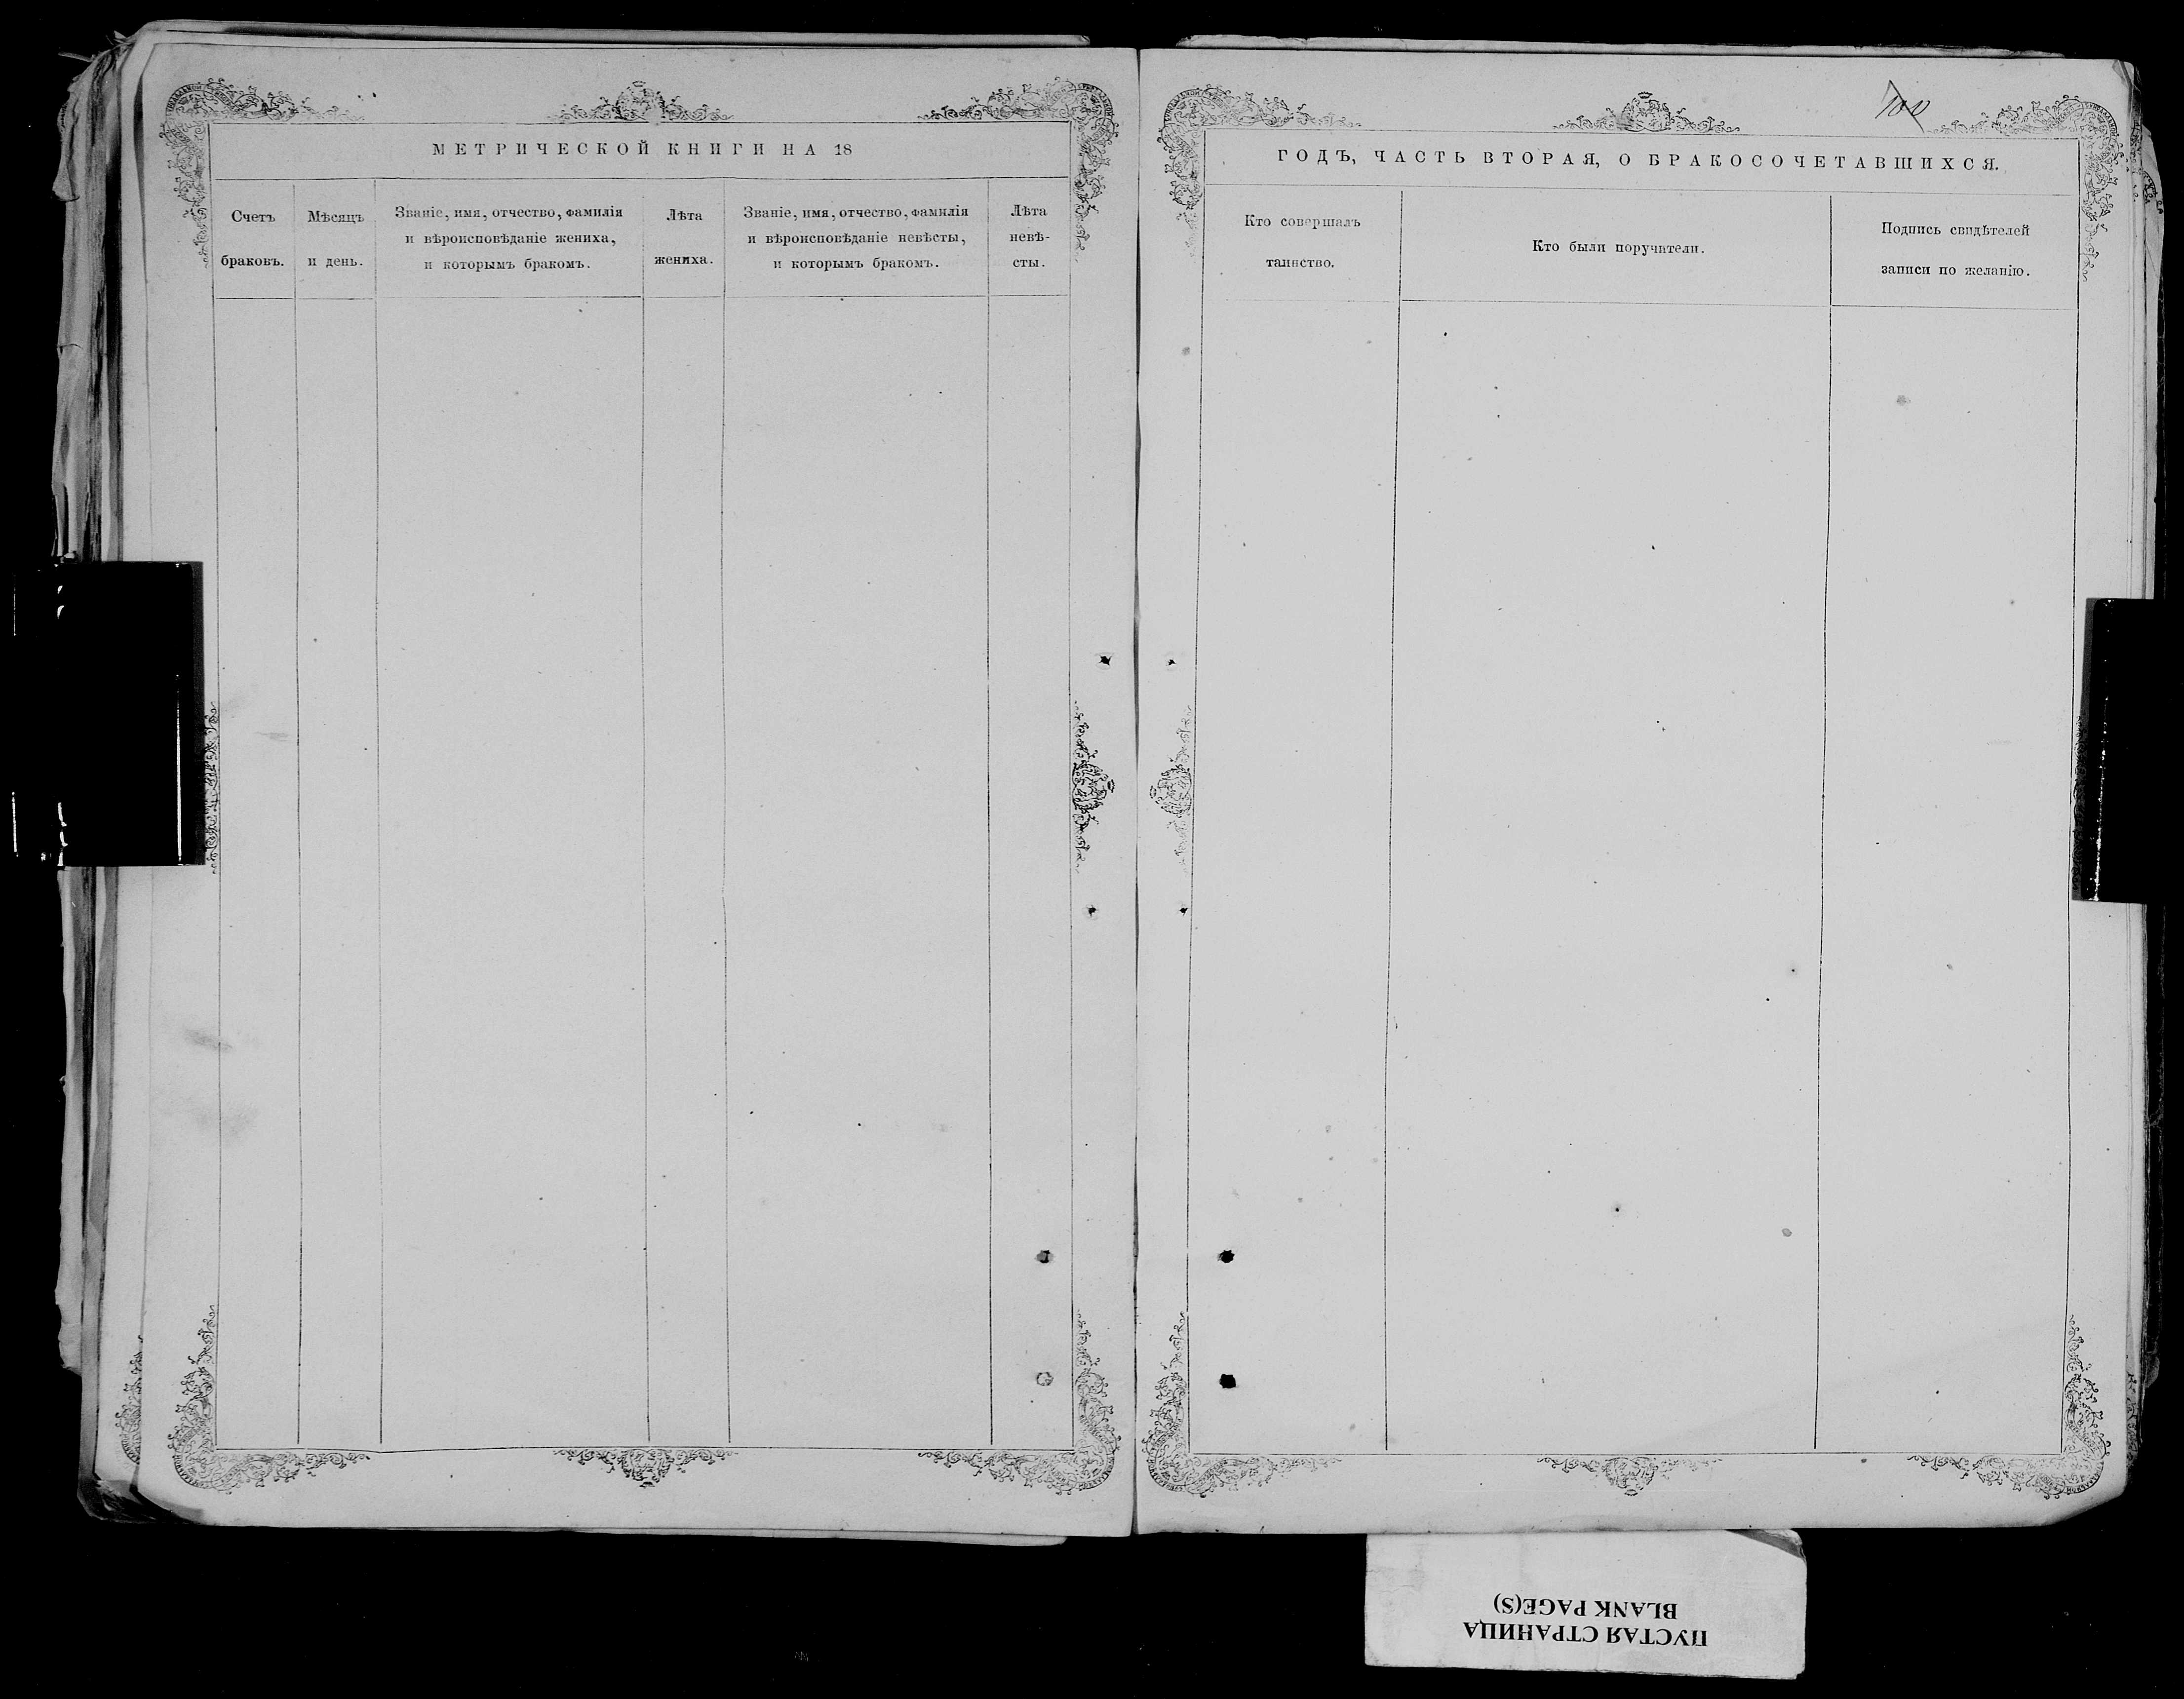 МЕТРИЧЕСКОЙ КНИГИ НА 18
Счетъ
браковъ.
Мѣсяцъ
и день.
Званіе, имя, отчество, фамилія
и вѣроисповѣданіе жениха,
и которымъ бракомъ.
Лѣта
жениха.
Званіе, имя, отчество, фамилія
и вѣроисповѣданіе невѣсты,
и которымъ бракомъ.
Лѣта
невѣ-
сты.
100
ГОДЪ, ЧАСТЬ ВТОРАЯ, О БРАКОСОЧЕТАВШИХСЯ.
Кто совершалъ
таинство.
Кто были поручители.
Подпись свидѣтелей
записи по желанію.
ПУСТАЯ СТРАНИЦА
BLANK PAGE(S)